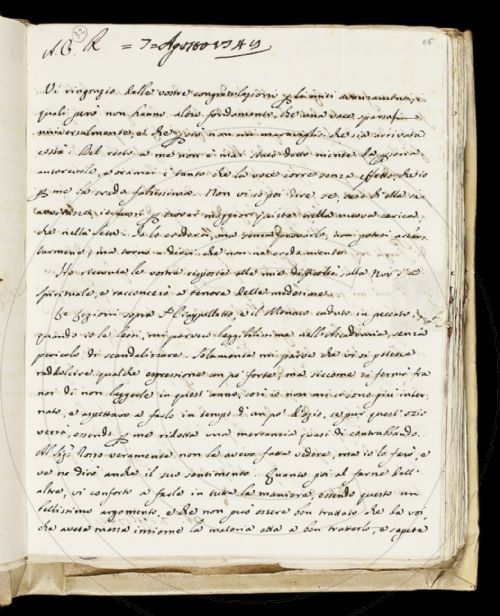 32
66
A. B. R. = 7 = Agosto 1749
Vi ringrazio delle vostre congratulazioni
quali però non hanno altro fondamento, che una voce sparsasi
universalmente, e che però non mi maraviglio che sia arrivata
costà. Del resto a me non è mai stato detto niente da persona
autorevole, e oramai è tanto che la voce corre senza effetto, che io
me la credo falsissima. Non vi so poi dire se, caso che ella si
avverasse, io fossi trovar maggior quiete nella nuova carica,
che nella Io lo crederei, ma senza provarlo, non potrei
ma torno a dirvi, che non ne credo niente.
Ho ricevuto le vostre risposte alle mie difficoltà, alla
spirituale, e racconcerò a tenore delle medesime.
Le Lezioni sopra e il Monaco caduto in peccato,
quando io le lessi, mi parvero leggibilissime nell'Accademia, senza
pericolo di scandolizzare. Solamente mi parve che vi si potesse
raddolcire qualche espressione un po' forte, ma siccome si fermò fra
noi di non leggerle in quest'anno, così io non mi ci sono più inter-
nato, e aspettavo a farlo in tempo di un po' d'ozio, se pur quest'ozio
verrà, essendo me ridotto una mercanzia quasi di contrabbando.
Al Sig. veramente non la avevo fatta vedere, ma io lo farò, e
ve ne dirò anche il suo sentimento. Quanto poi al farne dell'
altre, vi conforto a farlo in tutte le maniere, essendo questo un
bellissimo argomento, e che non può essere ben trattato che da voi,
che avete messa insieme la materia atta a ben trattarlo, e sapete